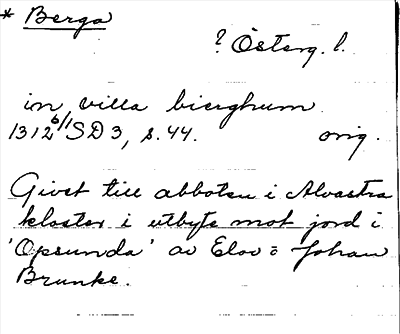 * Berga
? Österg. l.
in villa bierghum
1312 6/1 SD 3, s. 44. orig.
Givet till abboten i Alvastra
kloster i utbyte mot jord i
'Opsunda' av Elov o Johan
Brunke.